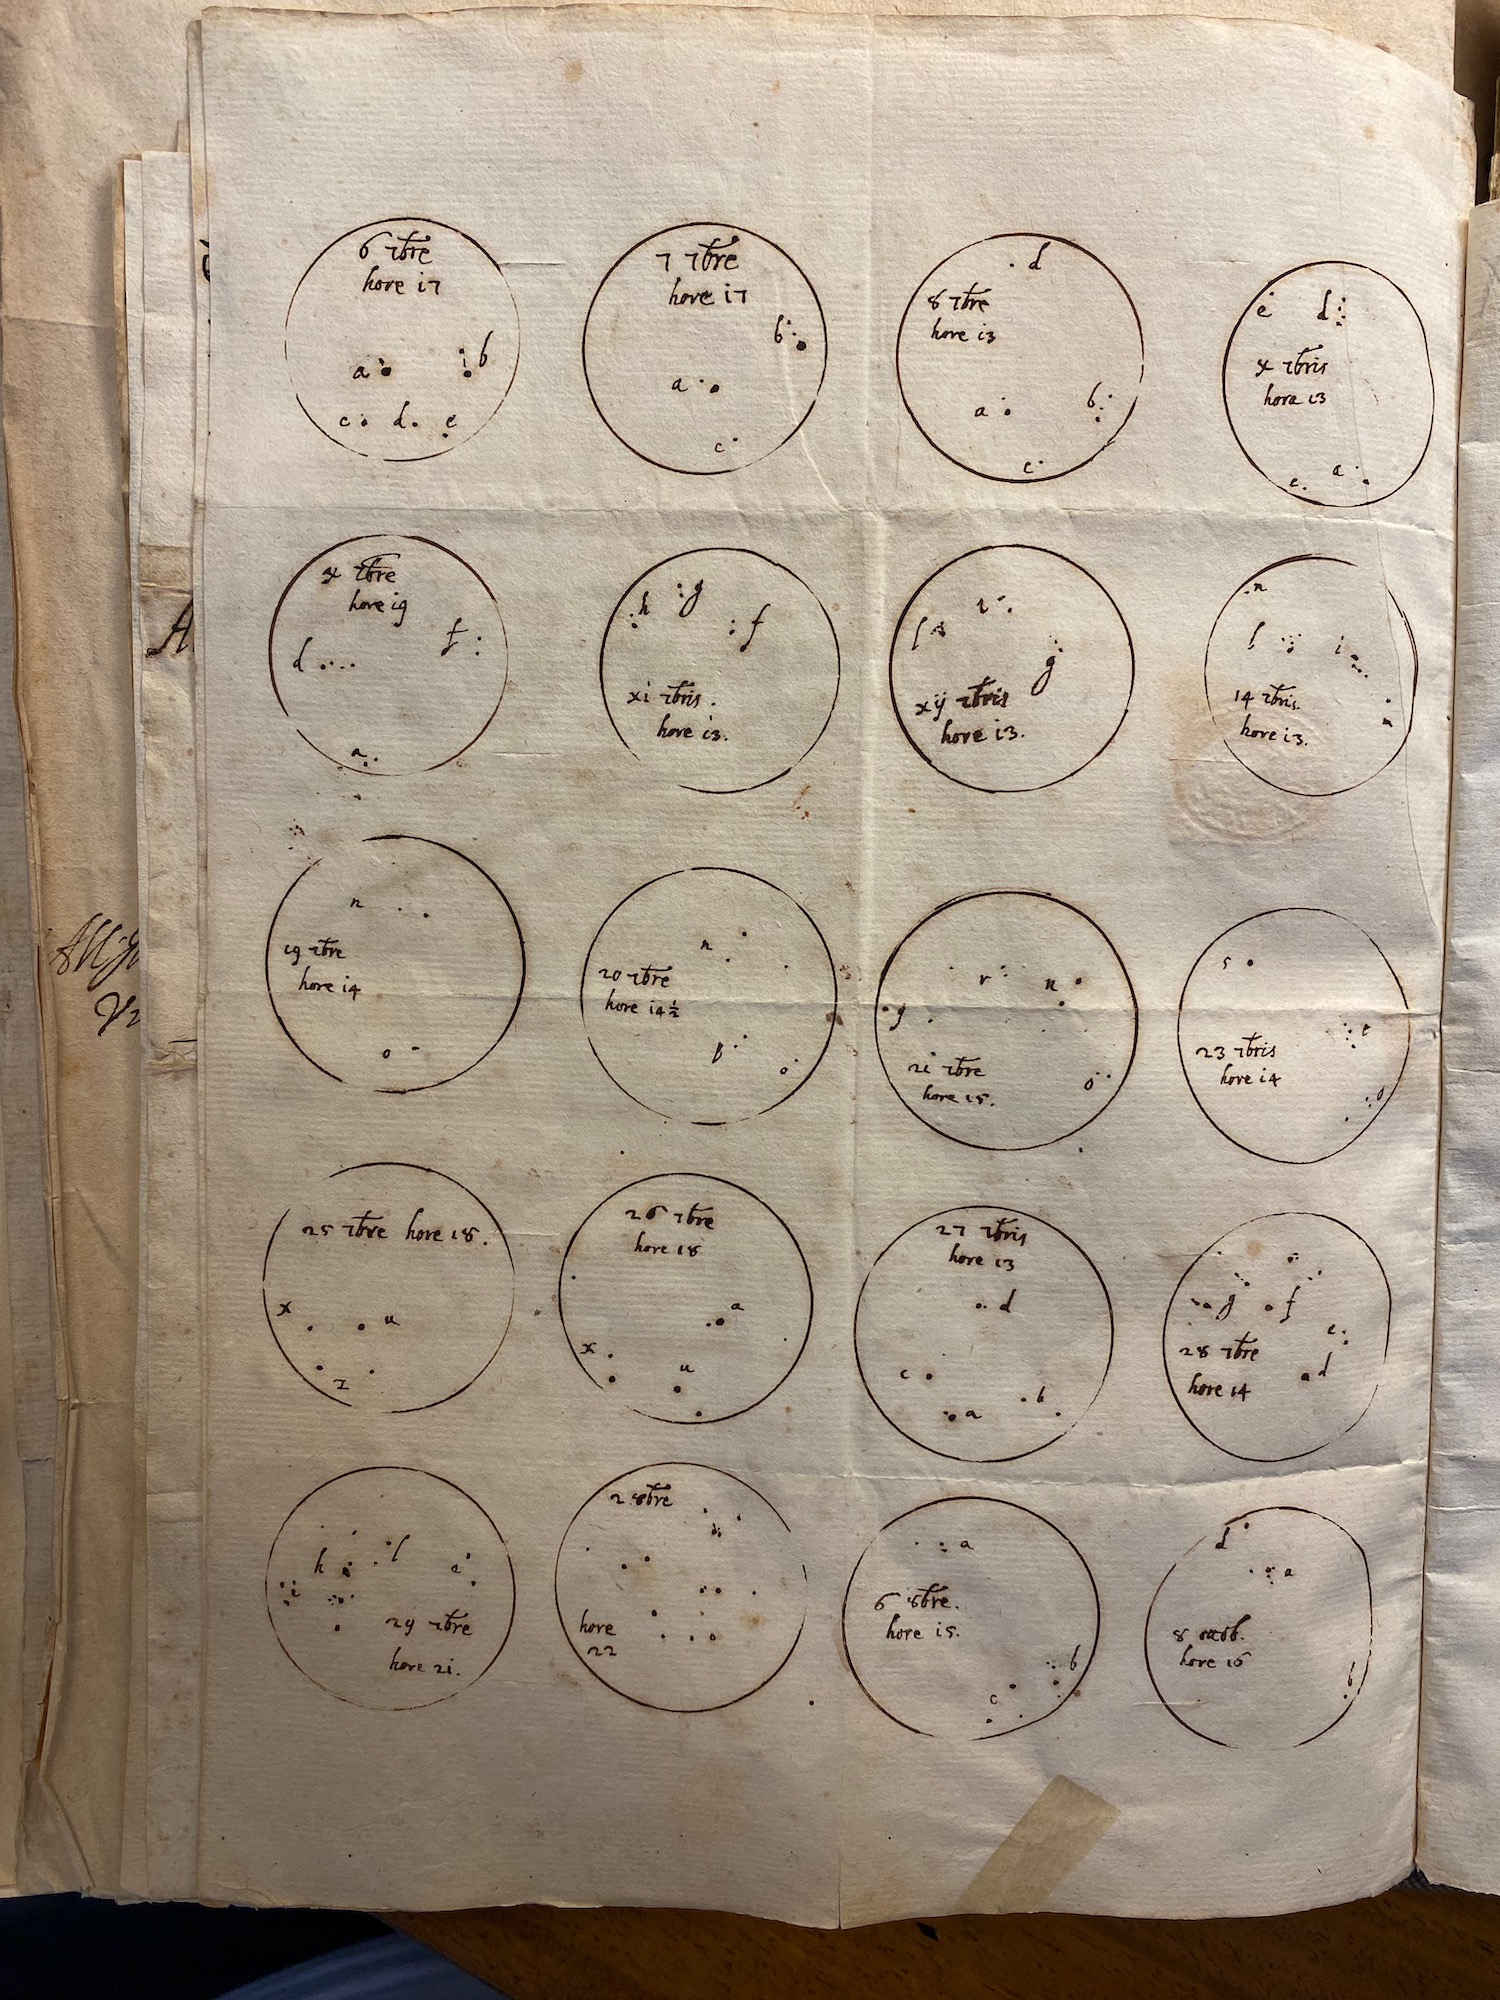 6 7bre
hore i7
a
b
c
d
e
7 7bre
hore i7
b
a
c
d
8 7bre
hore i3
a
b
c
e
d
x 7bris
hora i3
c
a
x 7bre
hore i9
d
f
a
h
g
f
xi 7bris.
hore i3.
i
l
g
xij 7bris
hore i3.
n
l
i
14 7bris.
hore i3.
n
i9 7bre
hore i4
o
n
20 7bre
hore i4½
p
o
r
n
2i 7bre
hore i5.
o
s
23 7bris
hore i4
o
25 7bre hore 18.
x
u
z
26 7bre
hore 18
a
x
u
27 7bris
hore 13
d
c
b
a
g
f
e
28 7bre
hore 14
d
h
l
i
29 7bre
hore 2i.
2 8bre
hore
22
a
6 8bre.
hore i5.
b
c
d
a
8
hore 16
b